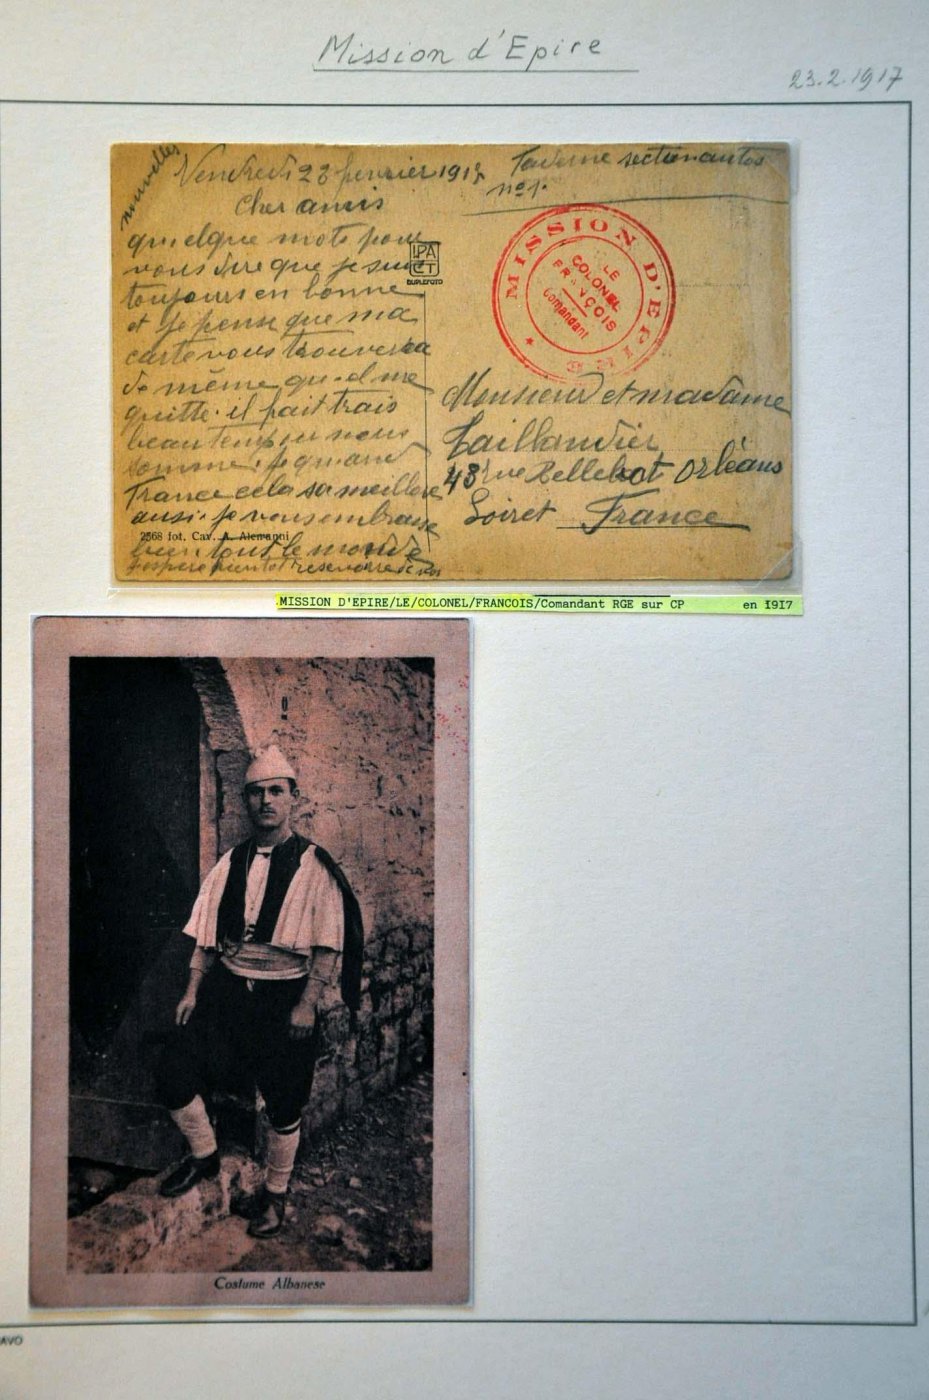 Mission d'Epire
23.2.1917
nouvelles
Vendredi 23 fevrier 1917
Taverne section autos
n°1.
Cher amis
quelque mots pour
vous dire que je suis
toujours en bonne
et je pense que ma
carte vous trouverea
de même qui-el me
quitte. il fait trais
beau temp ou nous
somme. je quand
France cela sa meillore
ausi. je vous embrasse
bien tout le monde
j'espere bientot
IPA
CT
DUPLEFOTO
MISSION D'EPIRE
LE
COLONEL
FRANÇOIS
Comandant
Monsieur et madame
Taillandier
43 rue Bellebat Orléans
Loiret France
2568 fot. Cav. A. Alemanni
MISSION D'EPIRE/LE/COLONEL/FRANCOIS/Comandant RGE sur CP en I9I7
Costume Albanese
AVO